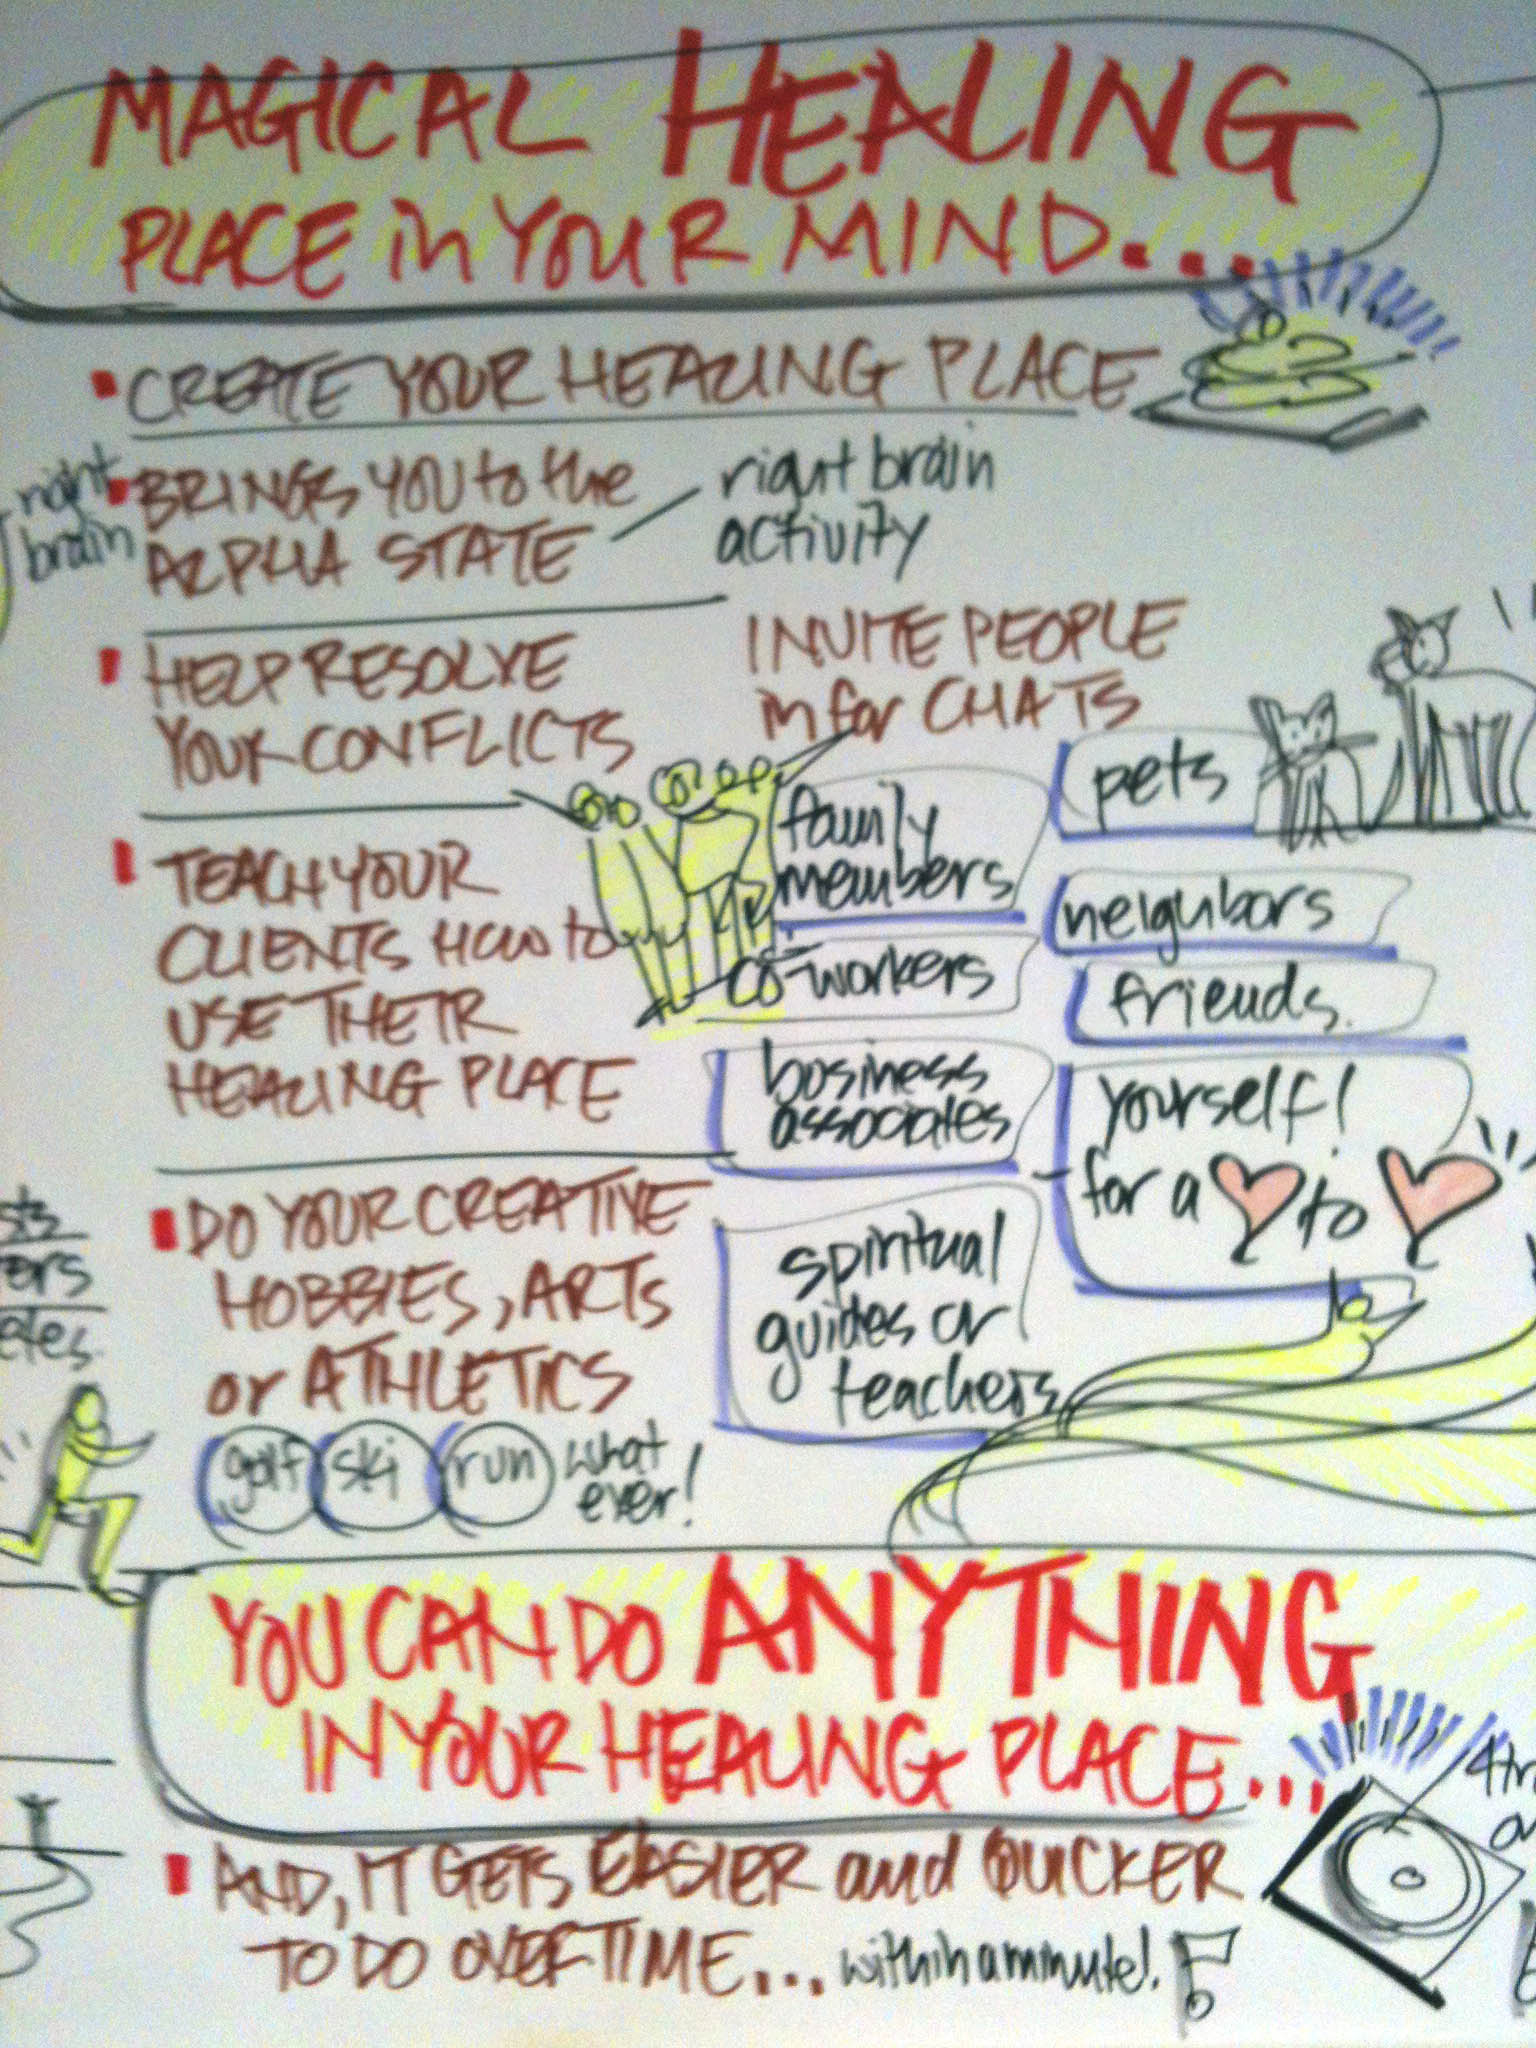 MAGICAL HEALING
PLACE in YOUR MIND...
CREATE YOUR HEALING PLACE
right
brain
BRINGS YOU to the
ALPHA STATE
right brain
activity
HELP RESOLVE
YOUR CONFLICTS
INVITE PEOPLE
in for CHATS
family
members
co-workers
business
associates
spiritual
guides or
teachers
pets
neighbors
friends.
yourself!
for a to
TEACH YOUR
CLIENTS HOW to
USE THEIR
HEALING PLACE
DO YOUR CREATIVE
HOBBIES, ARTS
or ATHLETICS
golf ski run what
ever!
YOU CAN DO ANYTHING
IN YOUR HEALING PLACE...
AND, IT GETS EASIER and QUICKER
TO DO OVERTIME... within a minute!